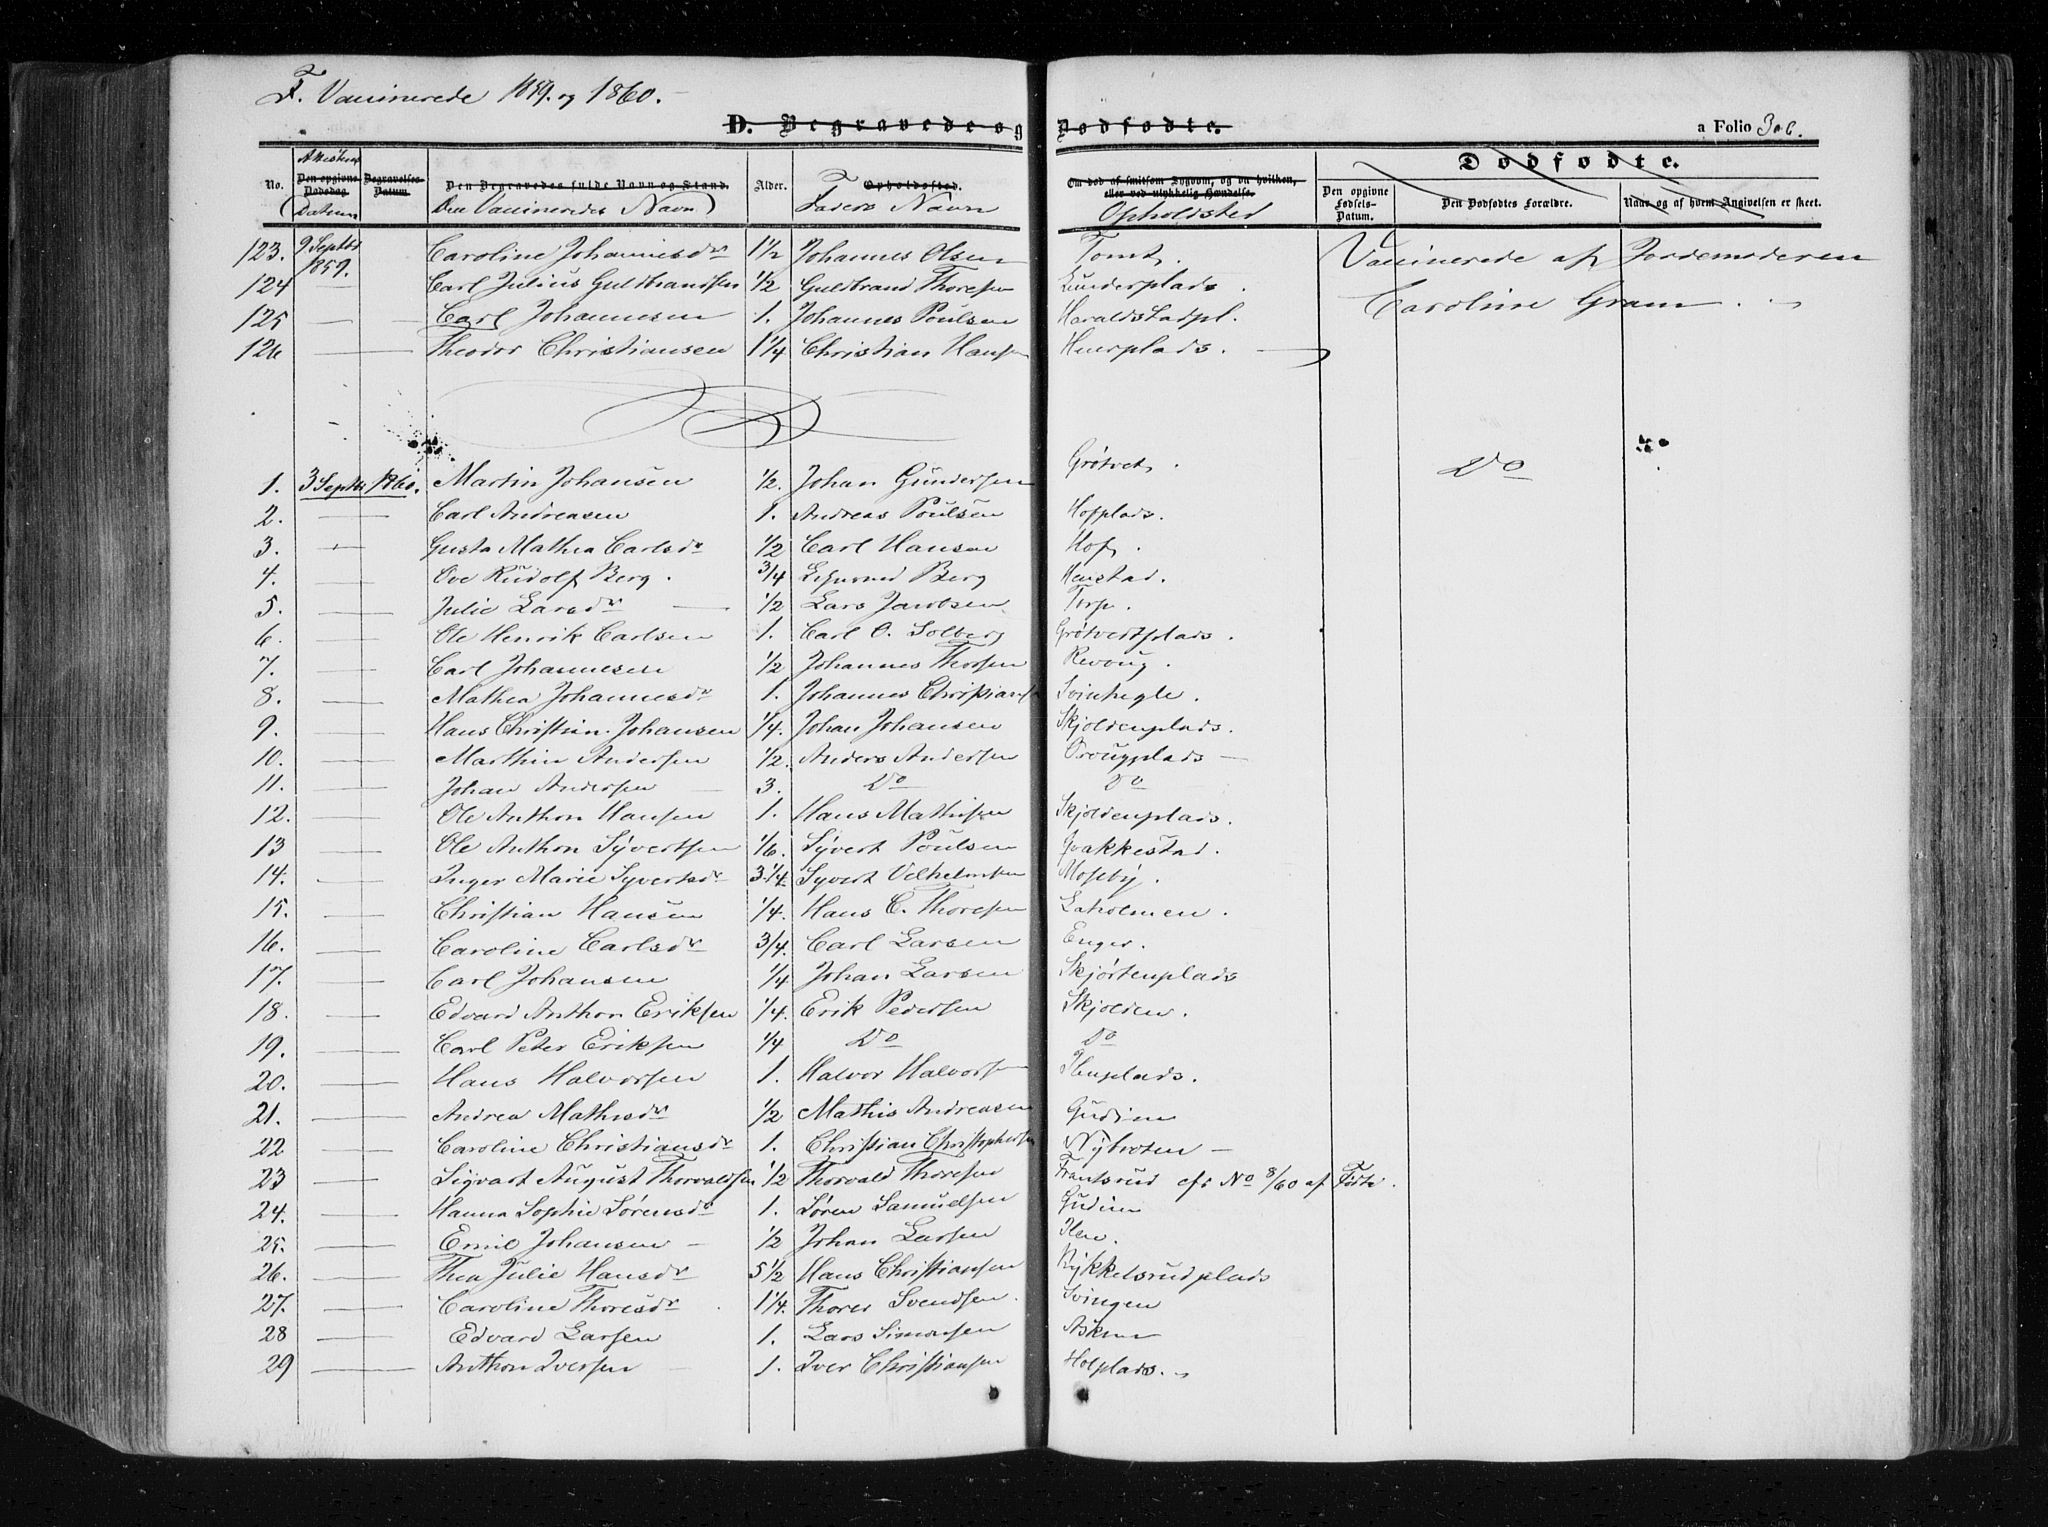 F. Vaccinerede 1859. og 1860.
D. Begravede og Dødfødte.
a Folio 306.
No. Den opgivne Dødsdag Begravelses-Datum. Den Begravedes fulde Navn og Stand. Alder. Opholdssted. Om død af smitsom Sygdom, og da hvilken, eller ved ulykkelig Hændelse. Dødfødte.
Attestens (Datum Den Vaccineredes Navn) Faders Navn Opholdsted Den opgivne Fødsels-Datum. Den Dødfødtes Forældre. Naar og af hvem Angivelsen er skeet.
123. 9 Septbr 1859. Caroline Johannesdr 1 1/2 Johannes Olsen Tomt. Vaccinerede af Jordemoderen
124 — Carl Julius Guldbrandsen 1/2 Guldbrand Thoresen Lunderplads. Caroline Gram.
125 — — Carl Johannesen 1. Johannes Poulsen Haraldstadpl.
126 — — Theodor Christiansen 1 1/4 Christian Hansen Huerplads.
1. 3 Septbr 1860. Martin Johansen 1/2. Johan Gundersen Grötvet. Do
2. — Carl Andreasen 1. Andreas Poulsen Hofplads.
3. — Gusta Mathea Carlsdr 1/2 Carl Hansen Hof.
4. — — Ove Rudolf Berg. 3/4 Berg
5. — — Julie Larsdr — 1/2 Lars Jacobsen Torp.
6. — — Ole Henrik Carlsen 1. Carl O. Solberg Grötvedtplads.
7. — — Carl Johannesen 1/2 Johannes Thorsen Revoug.
8. — — Mathea Johannesdr 1. Johannes Christiansen Svinhegle.
9. — — Hans Christian Johansen 1/4. Johan Johansen Skjoldenplads.
10. — — Marthin Andersen 1/2. Anders Andersen Ovougplads —
11. — — Johan Andersen — 3. Do Do
12. — — Ole Anthon Hansen 1. Hans Mathisen Skjoldenplads.
13 — — Ole Anthon Syvertsen 1/6. Syvert Poulsen Qvakkestad.
14. — — Inger Marie Syvertsdr 3 1/4. Syvert Vilhelmsen Moseby.
15. — — Christian Hansen 1/4. Hans C. Thoresen Laholmen.
16. — — Caroline Carlsdr 3/4. Carl Larsen Enger.
17. — — Carl Johansen 1/4 Johan Larsen Skjørtenplads
18. — — Edvard Anthon Eriksen 1/4. Erik Pedersen Skjolden.
19. — — Carl Peter Eriksen 1/4 Do Do
20. — — Hans Halvorsen 1. Halvor Halvorsen Ihenplads.
21. — — Andrea Mathisdr 1/2 Mathis Andreasen Gudim
22 — — Caroline Christiansdr 1. Christian Christophersen Nybroten —
23 — — Sigvart August Thorvaldsen 1/2 Thorvald Thoresen Frantsrud cfr No 8/60 af Fødte.
24. — — Hanna Sophie Sørensdr 1. Søren Samuelsen Gudim
25. — — Emil Johansen — 1/2 Johan Larsen
26. — — Thea Julie Hansdr 5 1/2 Hans Christiansen Rykkelsrudplads
27. — — Caroline Thoresdr. 1 1/4. Thores Svendsen. Svingen
28 — — Edvard Larsen 1. Lars Simonsen Askim
29 — — Anthon Iversen — 1. Iver Christiansen Holplads.